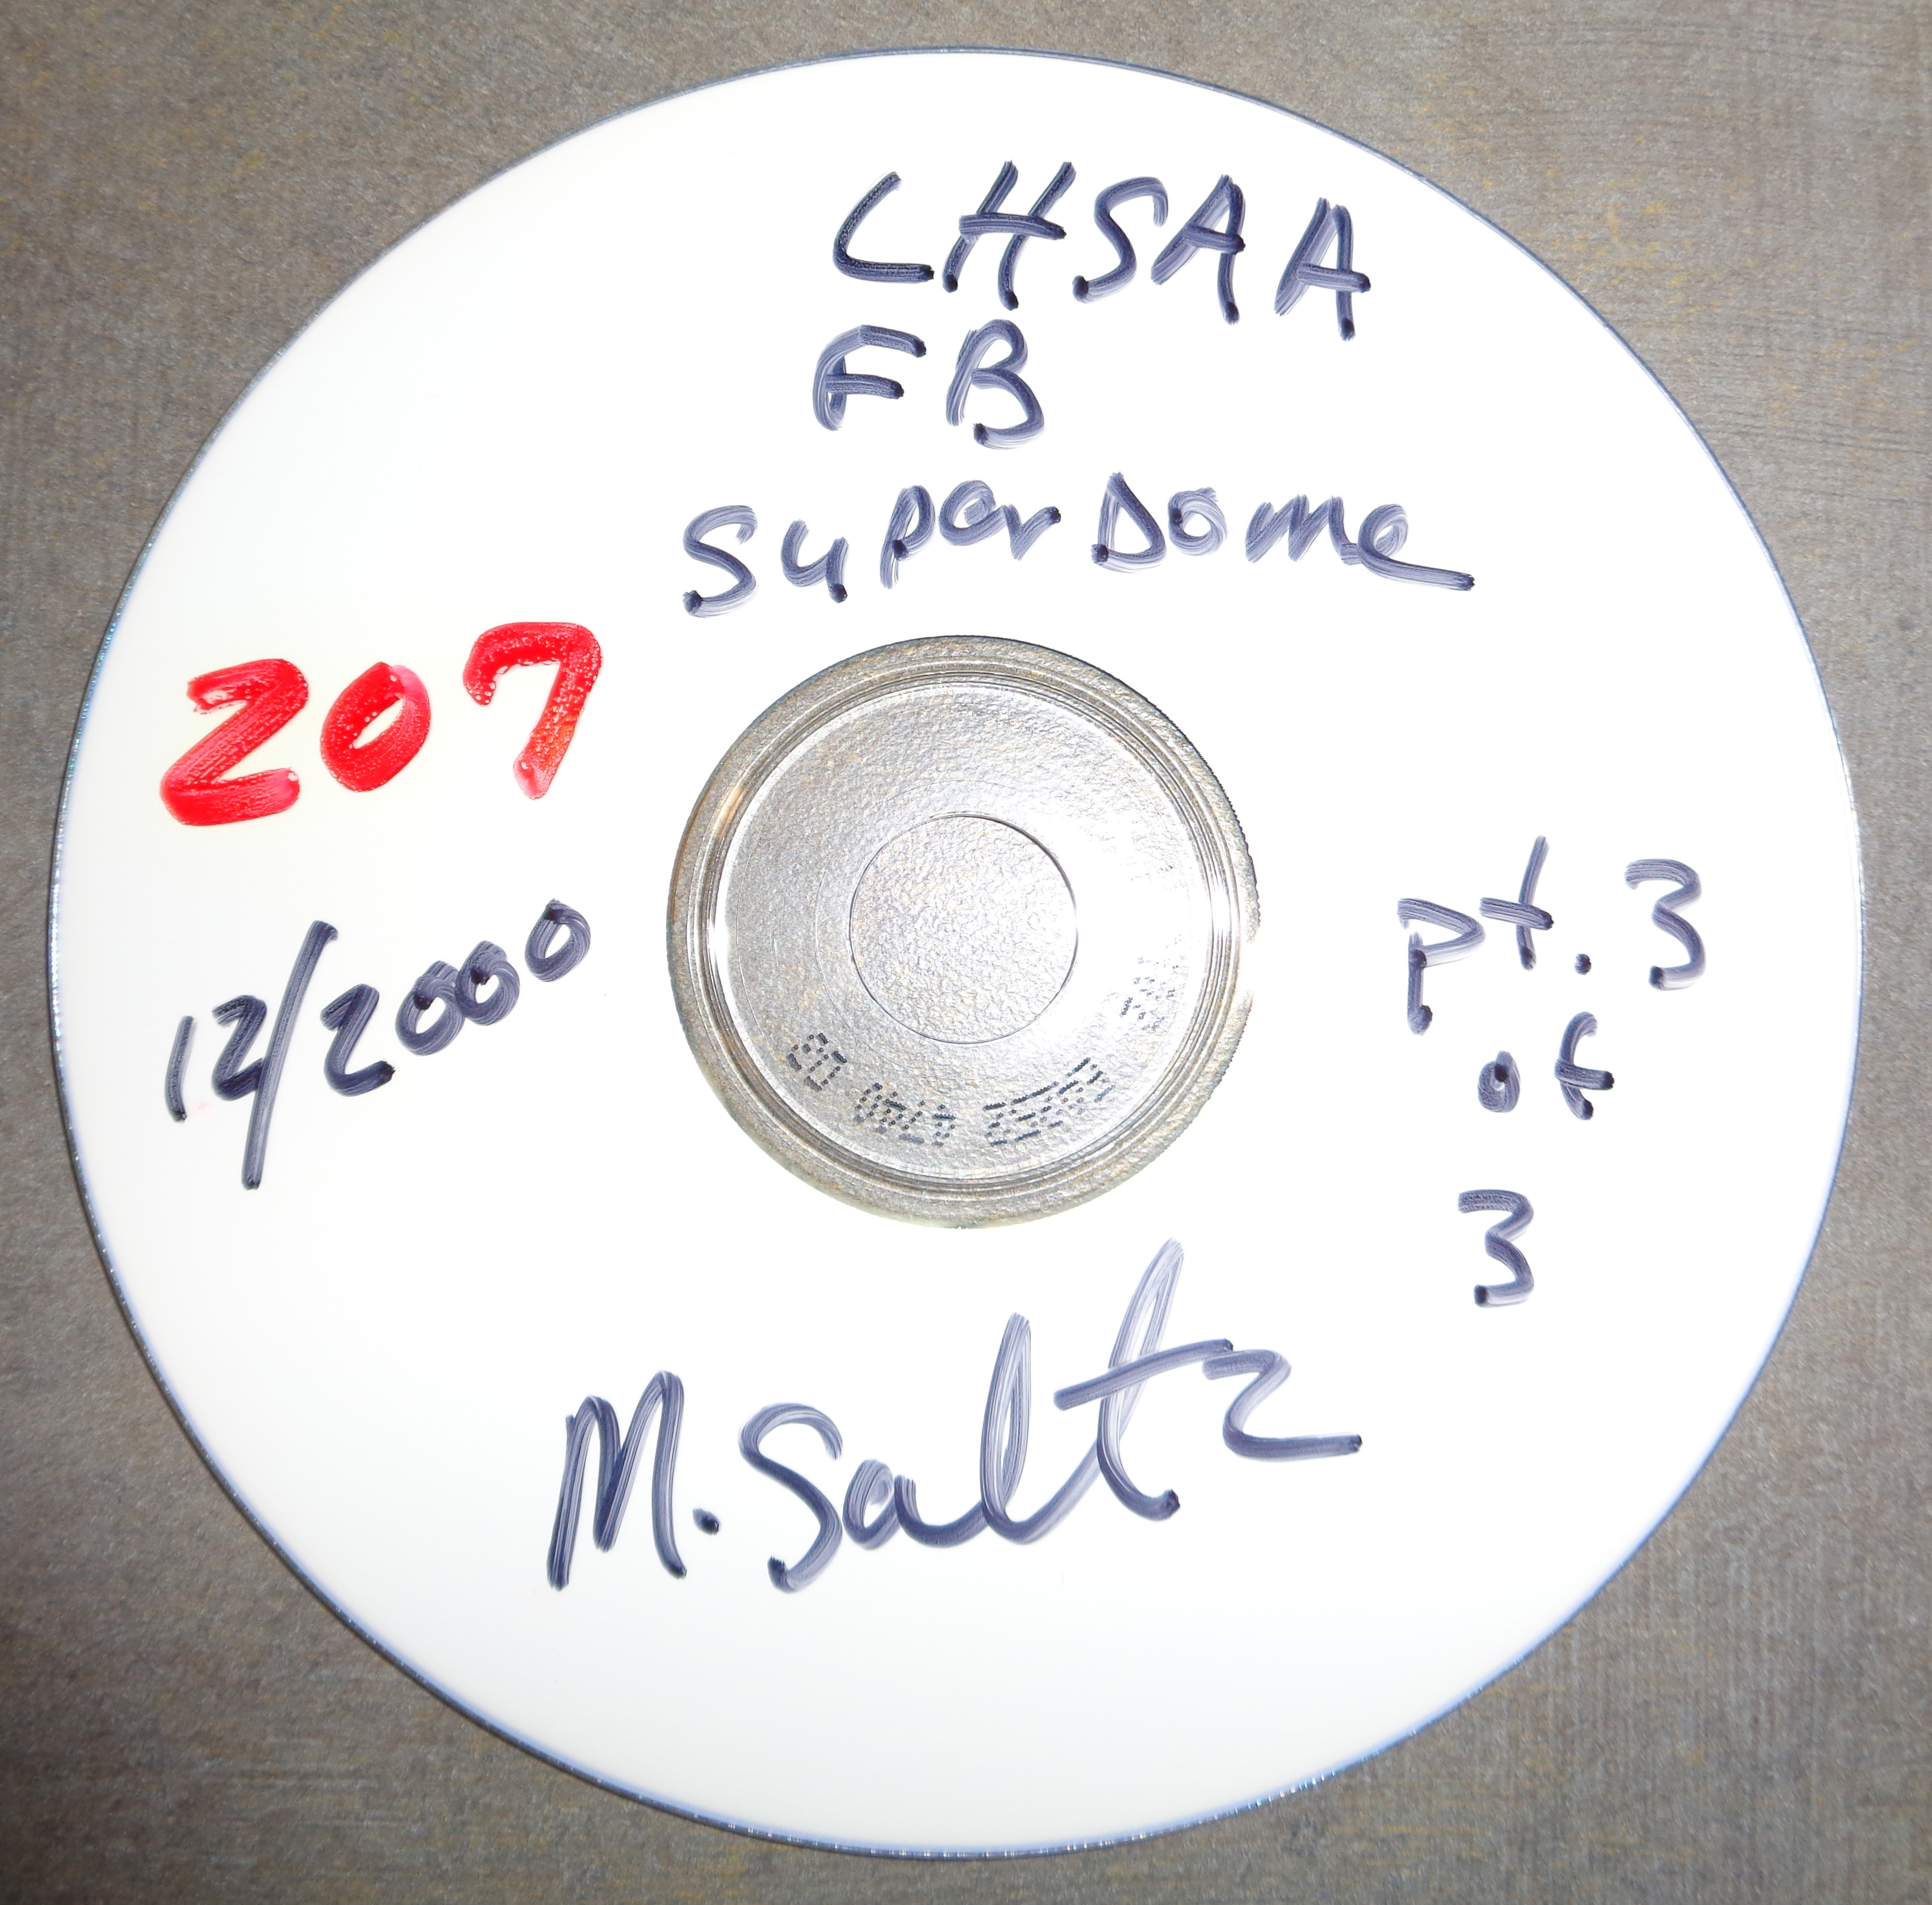 LHSAA
FB
SuperDome
207
12/2000
pt. 3
of
3
M. Saltz